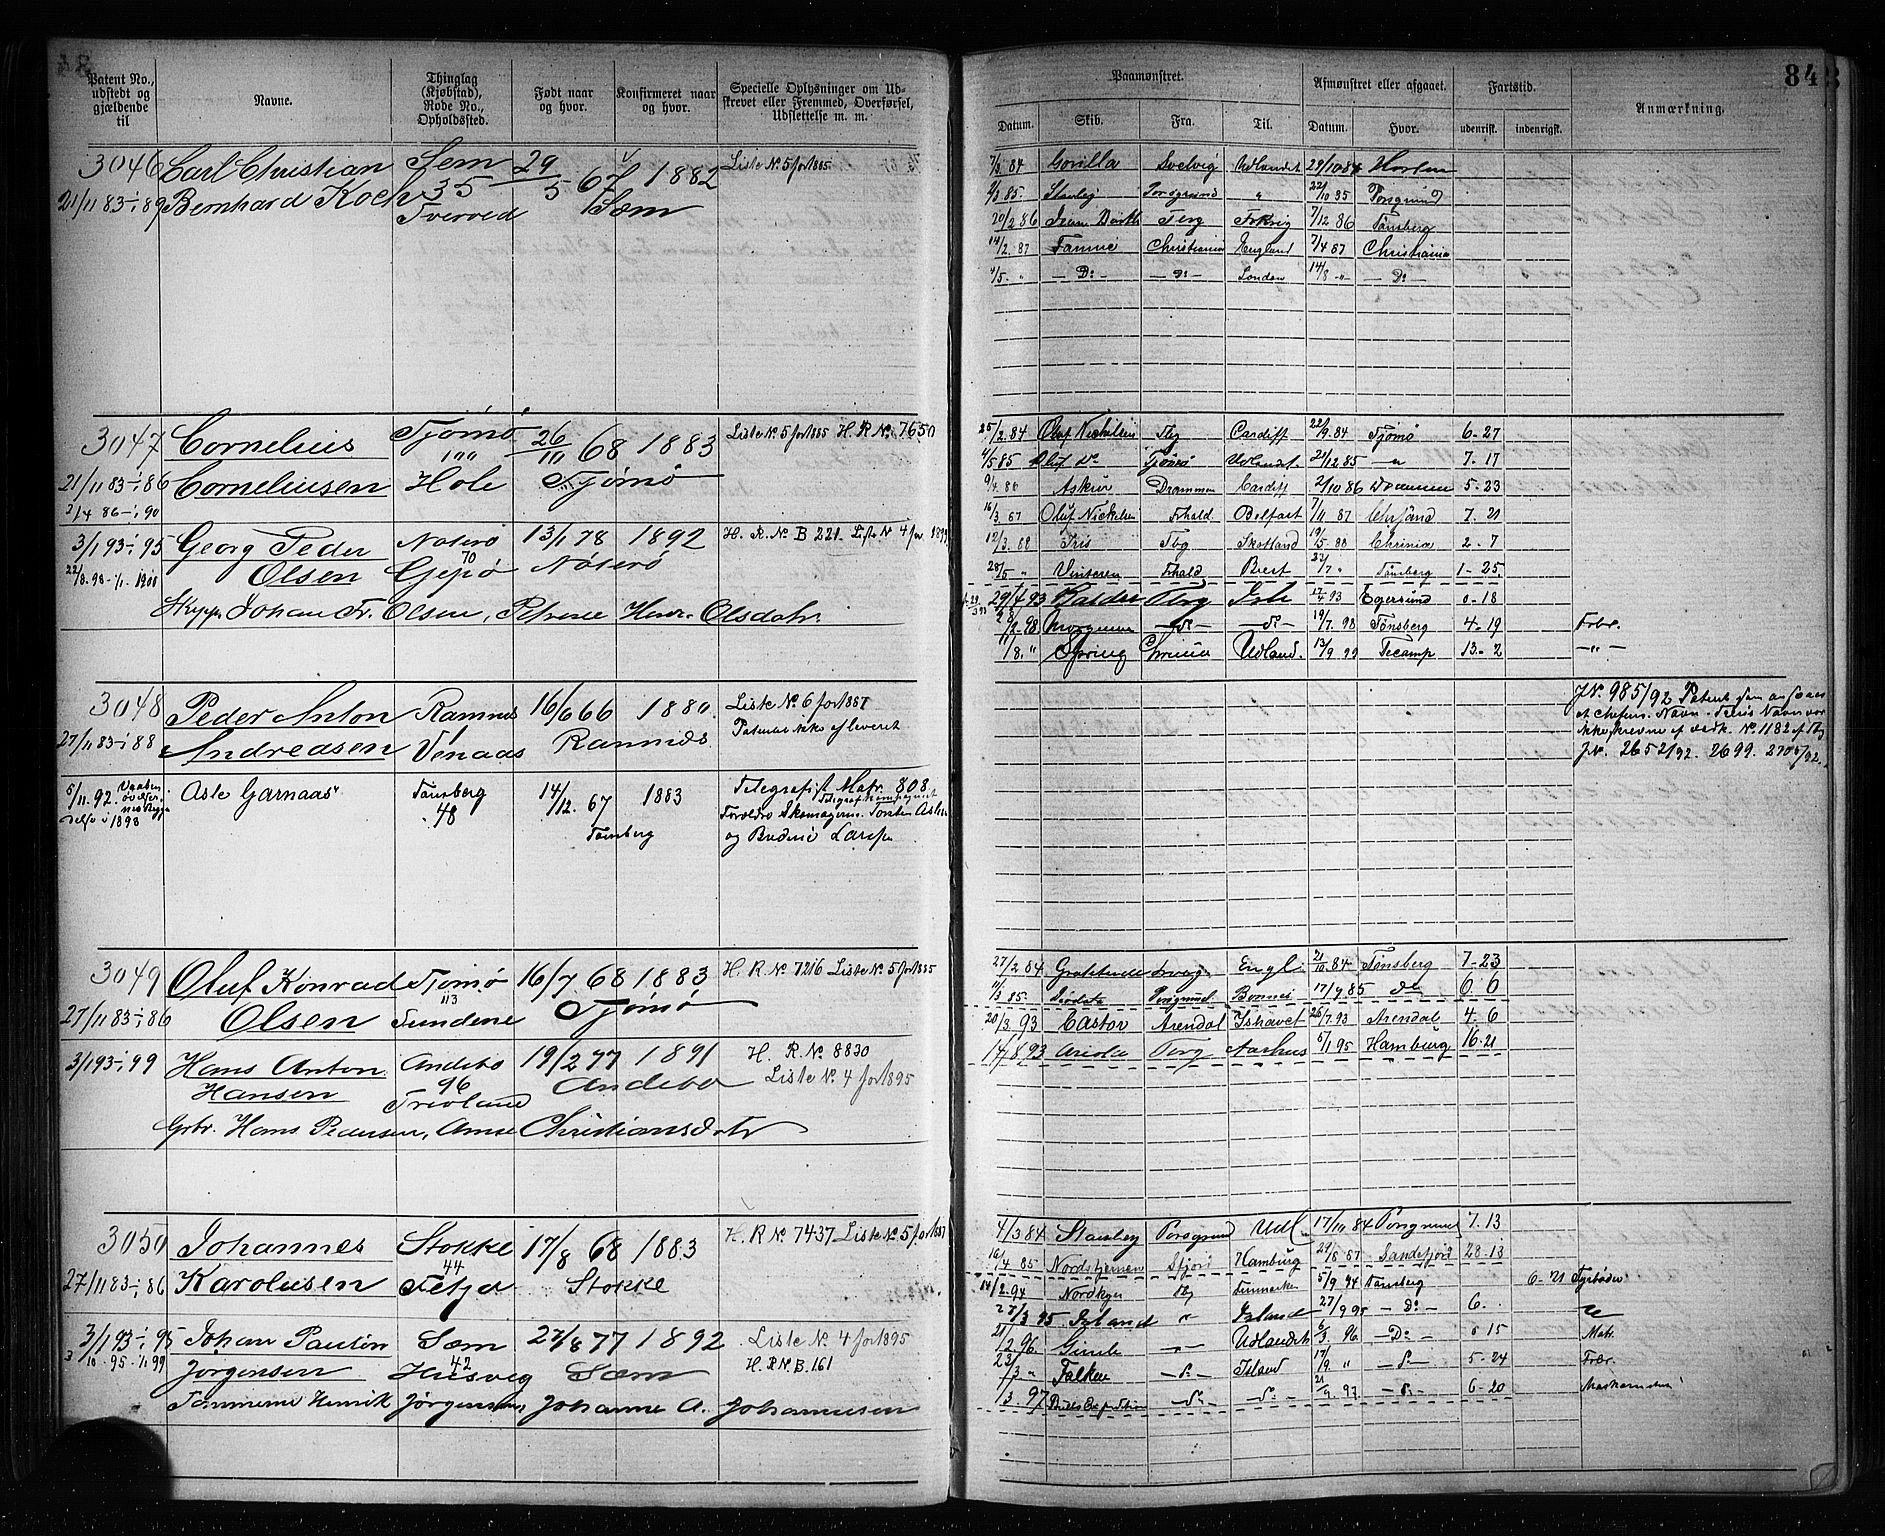 84
Patent No., udstedt og gjældende til
Navne.
Thinglag (Kjøbstad), Rode No., Opholdssted.
Født naar og hvor.
Konfirmeret naar og hvor.
Specielle Oplysninger om Udskrevet eller Fremmed, Overførsel, Udslettelse m. m.
Paamønstret.
Afmønstret eller afgaaet.
Fartstid.
Anmærkning.
Datum. Skib. Fra. Til. Datum. Hvor. udenrigsk. indenrigsk.
3046 Carl Christian Sem 29/5 67 1882 Liste No. 5 for 1885
21/11 83-1/1 89 Bernhard Koch 35 Sem
Tverved
7/3 84 Gorilla Svelvig Udlandet 29/10 84 Horten
2/3 85 Stanley Porsgrund " 22/10 85 Porsgrund
20/2 86 Tbrg 7/12 86 Tønsberg
14/2 87 Fannie Christiania England 7/4 87 Christiania
4/5 " Do Do London 14/8 " Do
3047 Cornelius Tjømø 26/10 68 1883 Liste No. 5 for 1885 H. R. No. 7650
21/11 83-1/1 86 Corneliusen Hole Tjømø
2/4 86-1/1 90
25/2 84 Oluf Nickelsen Tbg Cardiff 22/9 84 Tjømø 6-27
4/5 85 Oluf Do Tjømø Udlandet 21/12 85 " 7-17
9/4 86 Askur Drammen Cardiff 2/10 86 Drammen 5-23
16/3 87 Oluf Nickelsen Frhald Belfast 7/11 87 Chrsand 7-21
12/3 88 Iris Tbg Skotland 19/5 88 Chrania 2-7
28/5 " Vinteren Frhald Brest 23/7 " Tønsberg 1-25
3/1 93-1/1 95 Georg Peder Nøterø 13/1 78 1892 H. R. No. B 221 Liste No 4 for 1899
22/8 98-1/1 1900 Olsen 70 Gipø Nøterø
Skipp. Johan Fr. Olsen, Petrea Olsdatr.
29/3 93 Balder Tbrg Ish 17/4 93 Egersund 0-18
98 Morgenen Do Do 19/7 98 Tønsberg 4-19 Frbr.
11/8 " Spring Chrania Udland. 13/9 99 Fecamp 13-2 "
3048 Peder Anton Ramnes 16/6 66 1880 Liste No. 6 for 1887
27/11 83-1/1 88 Andreasen Venaas Ramnes Patentet ikke afleveret
J No. 985/92 Patent
J No. 2652/92. 2699. 2705/92
5/11 92. Vaabenøvelser Asle Garnaas Tønsberg 14/12 67 1883 Telegrafist Matr. 808
i 1893 48 Tønsberg Telegrafkompagniet
Forældre Skomagerm. Torsten Aslesen
og Bredine Larsen
3049 Oluf Konrad Tjømø 16/7 68 1883 H. R. No 7216 Liste No 5 for 1885
27/11 83-1/1 86 Olsen 113 Sundene Tjømø
27/2 84 Engl 21/10 84 Tønsberg 7-23
11/3 85 Porsgrund 17/9 85 Do 6 6
20/3 93 Castor Arendal Ishavet 26/7 93 Arendal 4-6
3/1 93-1/1 99 Hans Anton Andebo 19/2 77 1891 H. R. No 8830
Hansen 96 Andebo Liste No. 4 for 1895
Trevland
Grbr. Hans Pedersen, Anne Christiansdatr
14/8 93 Ariola Tbrg Aarhus 5/1 95 Hamburg 16-21
3050 Johannes Stokke 17/8 68 1883 H. R. No 7437 Liste No 5 for 1887
27/11 83-1/1 86 Karolusen 44 Fetja Stokke
4/3 84 Stanley Porsgrund Udl 17/10 84 Porsgrund 7-13
16/4 85 Nordstjernen Sfjord Hamburg 29/8 87 Sandefjord 28-13
3/1 93-1/1 95 Johan Paulin Sæm 27/8 77 1892 Liste No. 4 for 1895
3/10 95-1/1 99 Jørgensen 42 Husvig Sæm H. R. No B. 161
Tømmermd Henrik Jørgensen, Johanne A. Johannesen
14/2 94 Nordkyn Tbg Finmarken 5/9 94 Tønsberg 6-21 Fyrbøder
27/3 95 Island " Island 27/9 95 Do 6.
21/2 96 Gimle " Udlandet 6/3 96 Do 0 15 Matr.
23/3 " Falken Do Island 17/9 " Do 5-24 Frbr.
/3 97 Do Do 21/9 97 Do 6-20